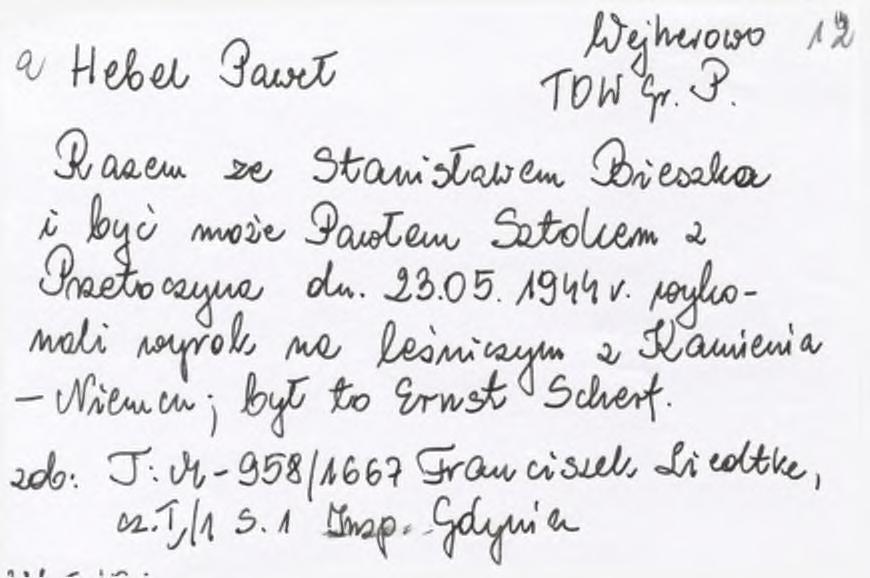 a Hebel Paweł
Wejherowo 12
TOW Gr. P.
Razem ze Stanisławem Bieszka
i być może Pawłem Sztokem z
Przetoczyna dn. 23.05.1944 r. wyko-
nali wyrok na leśniczym z Kamienia
– Niemcu; był to Ernst Scherf.
zob: T: M-958/1667 Franciszek Liedtke,
cz. I/1 s. 1 Insp. Gdynia